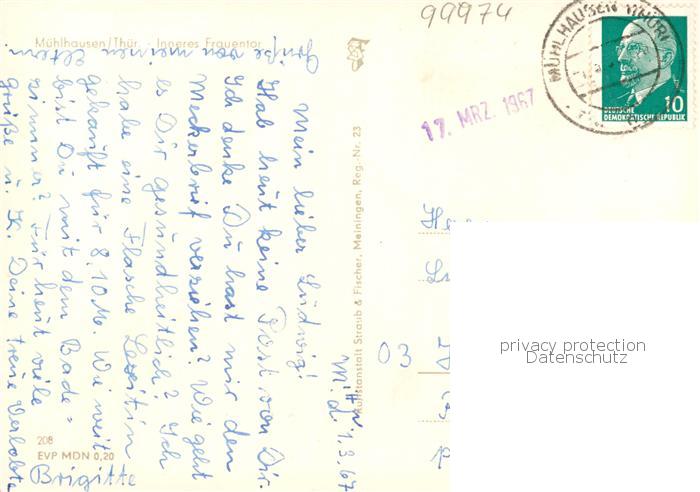 99974
Mühlhausen/Thür. Inneres Frauentor
MÜHLHAUSEN (THÜR)
17. MRZ. 1967
DEUTSCHE
DEMOKRATISCHE REPUBLIK
10
M. d. 1.3.67
Mein lieber Ludwig!
Hab heut keine Post von Dir.
Ich denke Du hast mir den
Meckerbrief verziehen? Wie geht
es Dir gesundheitlich? Ich
habe eine Flasche Lezitin
gekauft für 8,10 M. Wie weit
bist Du mit dem Bade=
zimmer? Für heut viele
Grüße u. K. Deine treue Verlobte
Brigitte
Grüße von meinen Eltern
Kunstanstalt Straub & Fischer, Meiningen, Reg.-Nr. 23
208
EVP MDN 0,20
03
privacy protection
Datenschutz